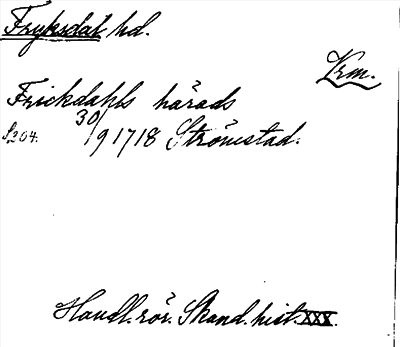 Fryksdals hd.
Vrm.
Frickdahls härads
S204. 30/9 1718 Strömstad.
Handl. rör. Skand. hist. XXX.